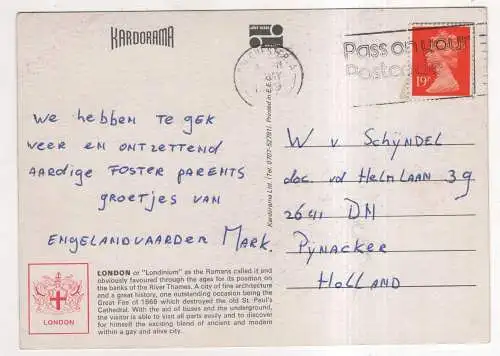 KARDORAMA
Pass on your
postcode
19
We hebben te gek
weer en ontzettend
aardige foster parents
groetjes van
Engelandvaarder Mark.
W v Schÿndel
doc vd Helmlaan 39
2641 DN
Pÿnacker
Holland
Kardorama Ltd. (Tel. 0707-52781). Printed in E.E.C.
LONDON or "Londinium" as the Romans called it and
obviously favoured through the ages for its position on
the banks of the River Thames. A city of fine architecture
and a great history, one outstanding occasion being the
Great Fire of 1666 which destroyed the old St. Paul's
Cathedral. With the aid of buses and the underground,
the visitor is able to visit all parts easily and to discover
for himself the exciting blend of ancient and modern
within a gay and alive city.
LONDON